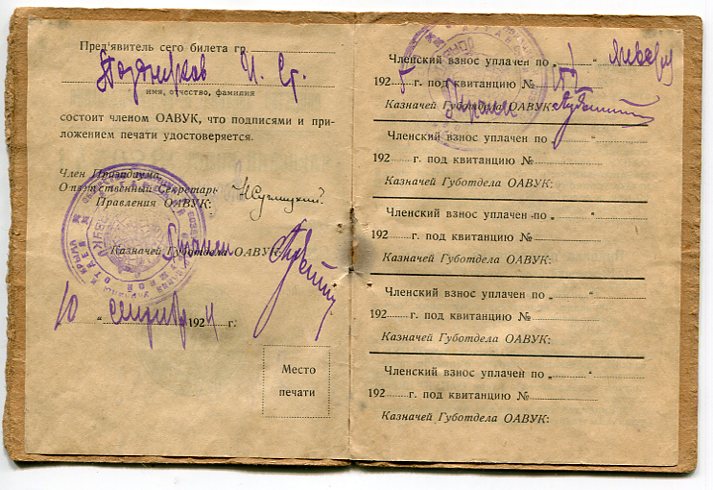 Пред'явитель сего билета гр.
Поздняков И. Ст.
имя, отчество, фамилия
состоит членом ОАВУК, что подписями и при-
ложением печати удостоверяется.
Член Президиума,
Ответственный Секретарь
Правления ОАВУК:
Казначей Губотдела ОАВУК:
10 " 1924 г.
Место
печати
Членский взнос уплачен по " " январь
1925 г. под квитанцию №
Казначей Губотдела ОАВУК:
Членский взнос уплачен по " "
192 г. под квитанцию №
Казначей Губотдела ОАВУК:
Членский взнос уплачен по " "
192 г. под квитанцию №
Казначей Губотдела ОАВУК:
Членский взнос уплачен по " "
192 г. под квитанцию №
Казначей Губотдела ОАВУК:
Членский взнос уплачен по " "
192 г. под квитанцию №
Казначей Губотдела ОАВУК: